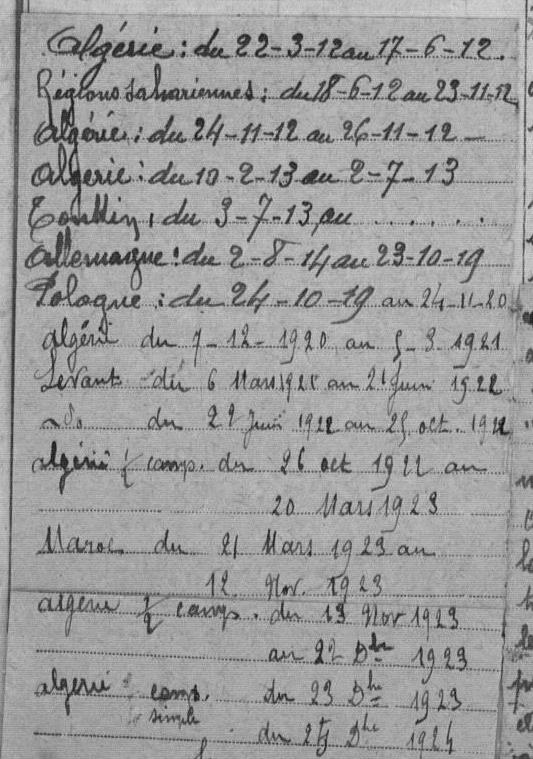 Algérie : du 22-3-12 au 17-6-12.
Régions sahariennes : du 18-6-12 au 23-11-12
Algérie : du 24-11-12 au 26-11-12 —
Algerie : du 10-2-13 au 2-7-13
Tonkin, du 3-7-13, au . . . . . .
Allemagne : du 2-8-14 au 23-10-19
Pologne : du 24-10-19 au 24-11-20
algérie du 7-12-1920 au 5-3 1921
Levant du 6 Mars 1921 au 21 Juin 1922
do du 22 Juin 1922 au 25 oct. 1922
algérie ½ camp. du 26 oct 1922 au
20 Mars 1923
Maroc du 21 Mars 1923 au
12 Nov. 1923
algerie ½ camp. du 13 Nov 1923
au 22 Dbre 1923
algerie camp. du 23 Dbre 1923
simple
du Dbre 1924